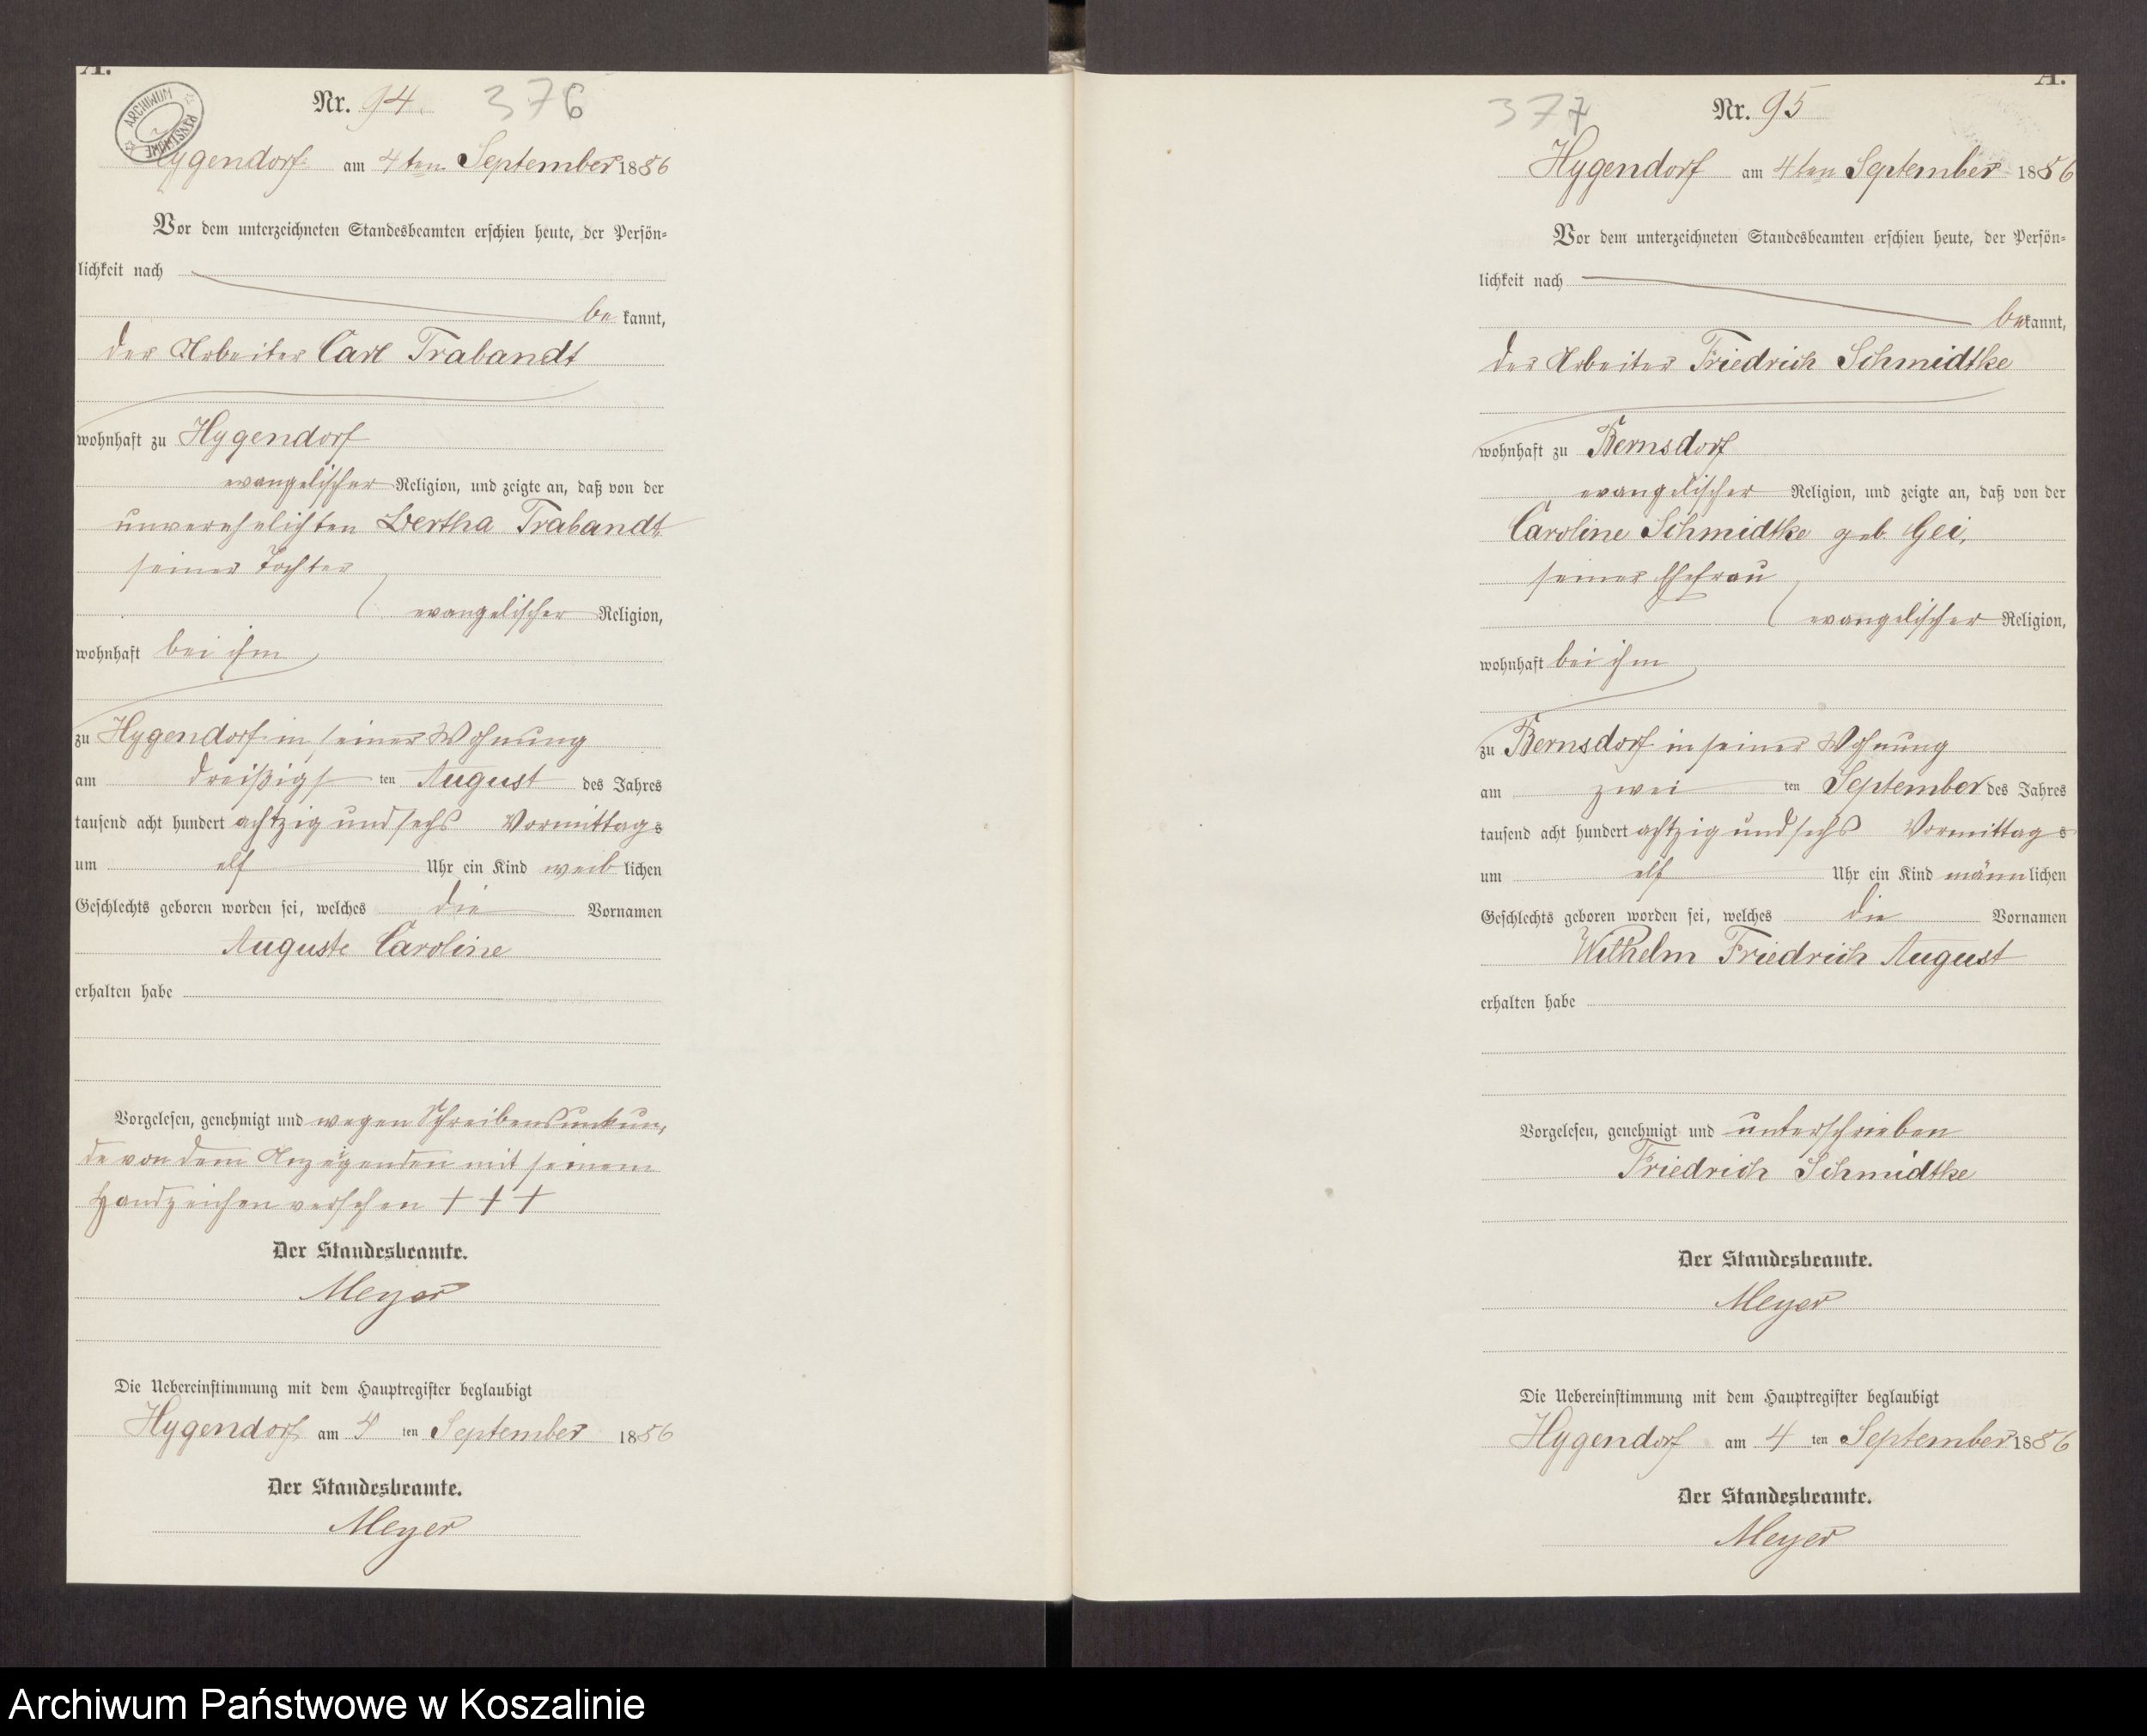 A.
ARCHIWUM PAŃSTWOWE
Nr. 94. 376
Hygendorf am 4ten September 1886
Vor dem unterzeichneten Standesbeamten erschien heute, der Persön-
lichkeit nach
be kannt,
der Arbeiter Carl Trabandt
wohnhaft zu Hygendorf
evangelischer Religion, und zeigte an, daß von der
unverehelichten Bertha Trabandt,
seiner Tochter
evangelischer Religion,
wohnhaft bei ihm
zu Hygendorf in seiner Wohnung
am dreißigs ten August des Jahres
tausend acht hundert achtzig und sechs Vormittags
um elf Uhr ein Kind weib lichen
Geschlechts geboren worden sei, welches die Vornamen
Auguste Caroline
erhalten habe
Vorgelesen, genehmigt und wegen Schreibensunkun,
de von dem Anzeigenden mit seinem
Handzeichen versehen + + +
Der Standesbeamte.
Meyer
Die Uebereinstimmung mit dem Hauptregister beglaubigt
Hygendorf am 4 ten September 1886
Der Standesbeamte.
Meyer
A.
377 Nr. 95
Hygendorf am 4ten September 1886
Vor dem unterzeichneten Standesbeamten erschien heute, der Persön-
lichkeit nach
bekannt,
der Arbeiter Friedrich Schmidtke
wohnhaft zu Bernsdorf
evangelischer Religion, und zeigte an, daß von der
Caroline Schmidtke geb. Gei,
seiner Ehefrau
evangelischer Religion,
wohnhaft bei ihm
zu Bernsdorf in seiner Wohnung
am zwei ten September des Jahres
tausend acht hundert achtzig und sechs Vormittags
um elf Uhr ein Kind männlichen
Geschlechts geboren worden sei, welches die Vornamen
Wilhelm Friedrich August
erhalten habe
Vorgelesen, genehmigt und unterschrieben
Friedrich Schmidtke
Der Standesbeamte.
Meyer
Die Uebereinstimmung mit dem Hauptregister beglaubigt
Hygendorf am 4 ten September 1886
Der Standesbeamte.
Meyer
Archiwum Państwowe w Koszalinie